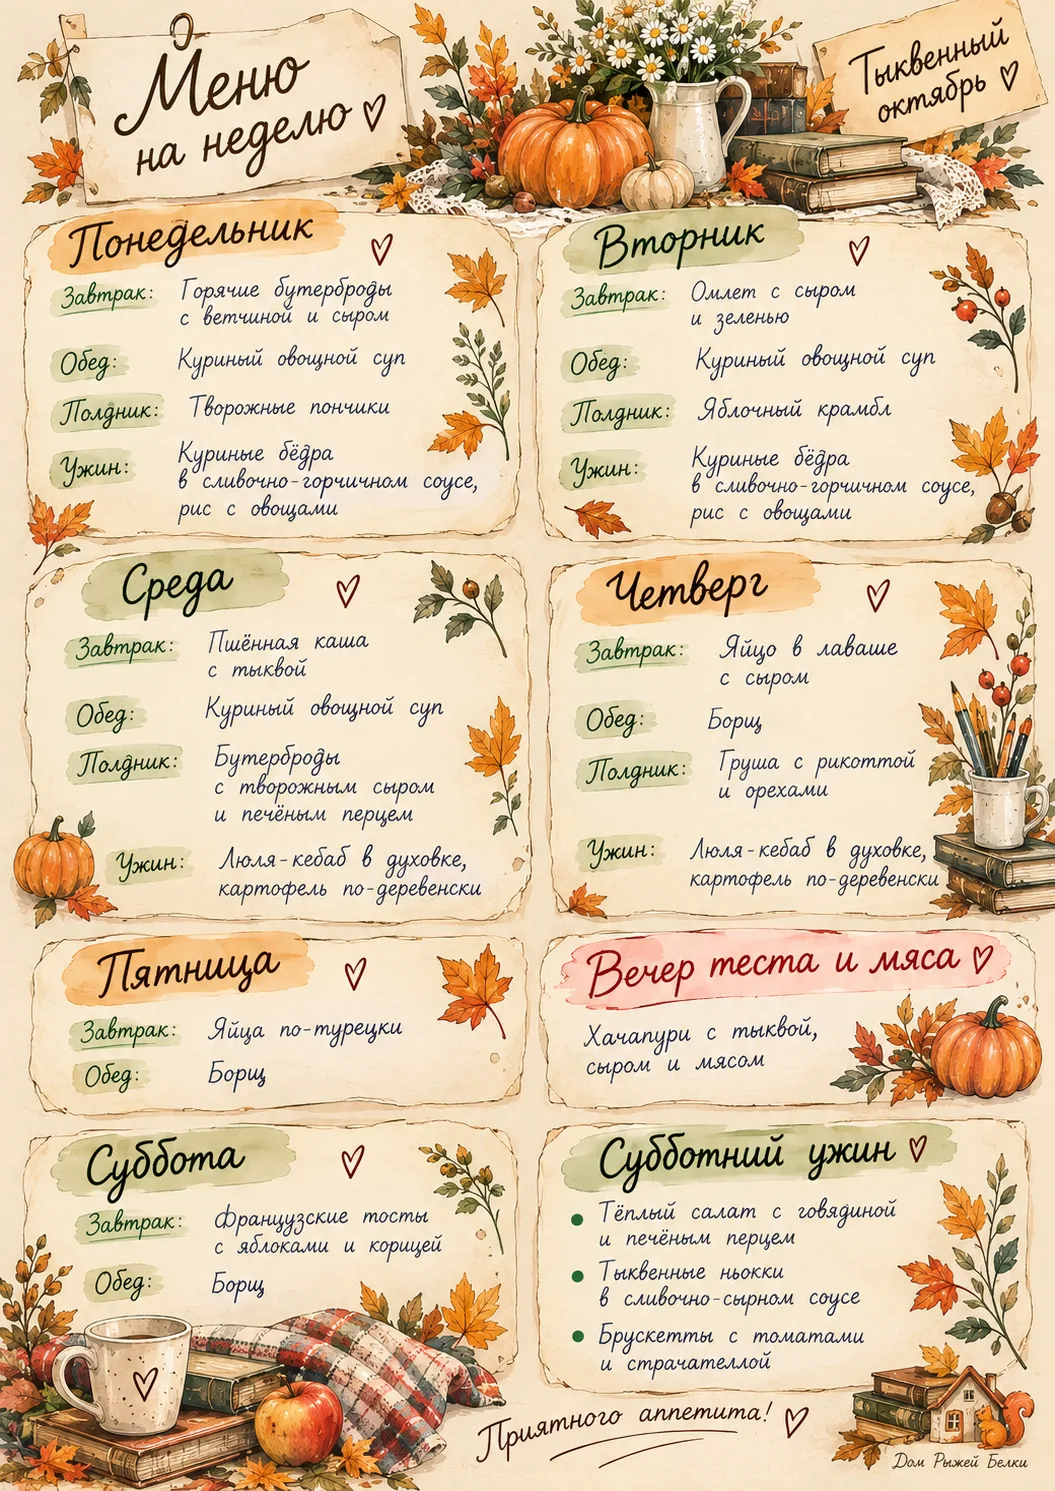 Меню
на неделю
Тыквенный
октябрь
Понедельник
Завтрак: Горячие бутерброды
с ветчиной и сыром
Обед: Куриный овощной суп
Полдник: Творожные пончики
Ужин: Куриные бёдра
в сливочно-горчичном соусе,
рис с овощами
Вторник
Завтрак: Омлет с сыром
и зеленью
Обед: Куриный овощной суп
Полдник: Яблочный крамбл
Ужин: Куриные бёдра
в сливочно-горчичном соусе,
рис с овощами
Среда
Завтрак: Пшённая каша
с тыквой
Обед: Куриный овощной суп
Полдник: Бутерброды
с творожным сыром
и печёным перцем
Ужин: Люля-кебаб в духовке,
картофель по-деревенски
Четверг
Завтрак: Яйцо в лаваше
с сыром
Обед: Борщ
Полдник: Груша с рикоттой
и орехами
Ужин: Люля-кебаб в духовке,
картофель по-деревенски
Пятница
Завтрак: Яйца по-турецки
Обед: Борщ
Вечер теста и мяса
Хачапури с тыквой,
сыром и мясом
Суббота
Завтрак: Французские тосты
с яблоками и корицей
Обед: Борщ
Субботний ужин
Тёплый салат с говядиной
и печёным перцем
Тыквенные ньокки
в сливочно-сырном соусе
Брускетты с томатами
и страчателлой
Приятного аппетита!
Дом Рыжей Белки